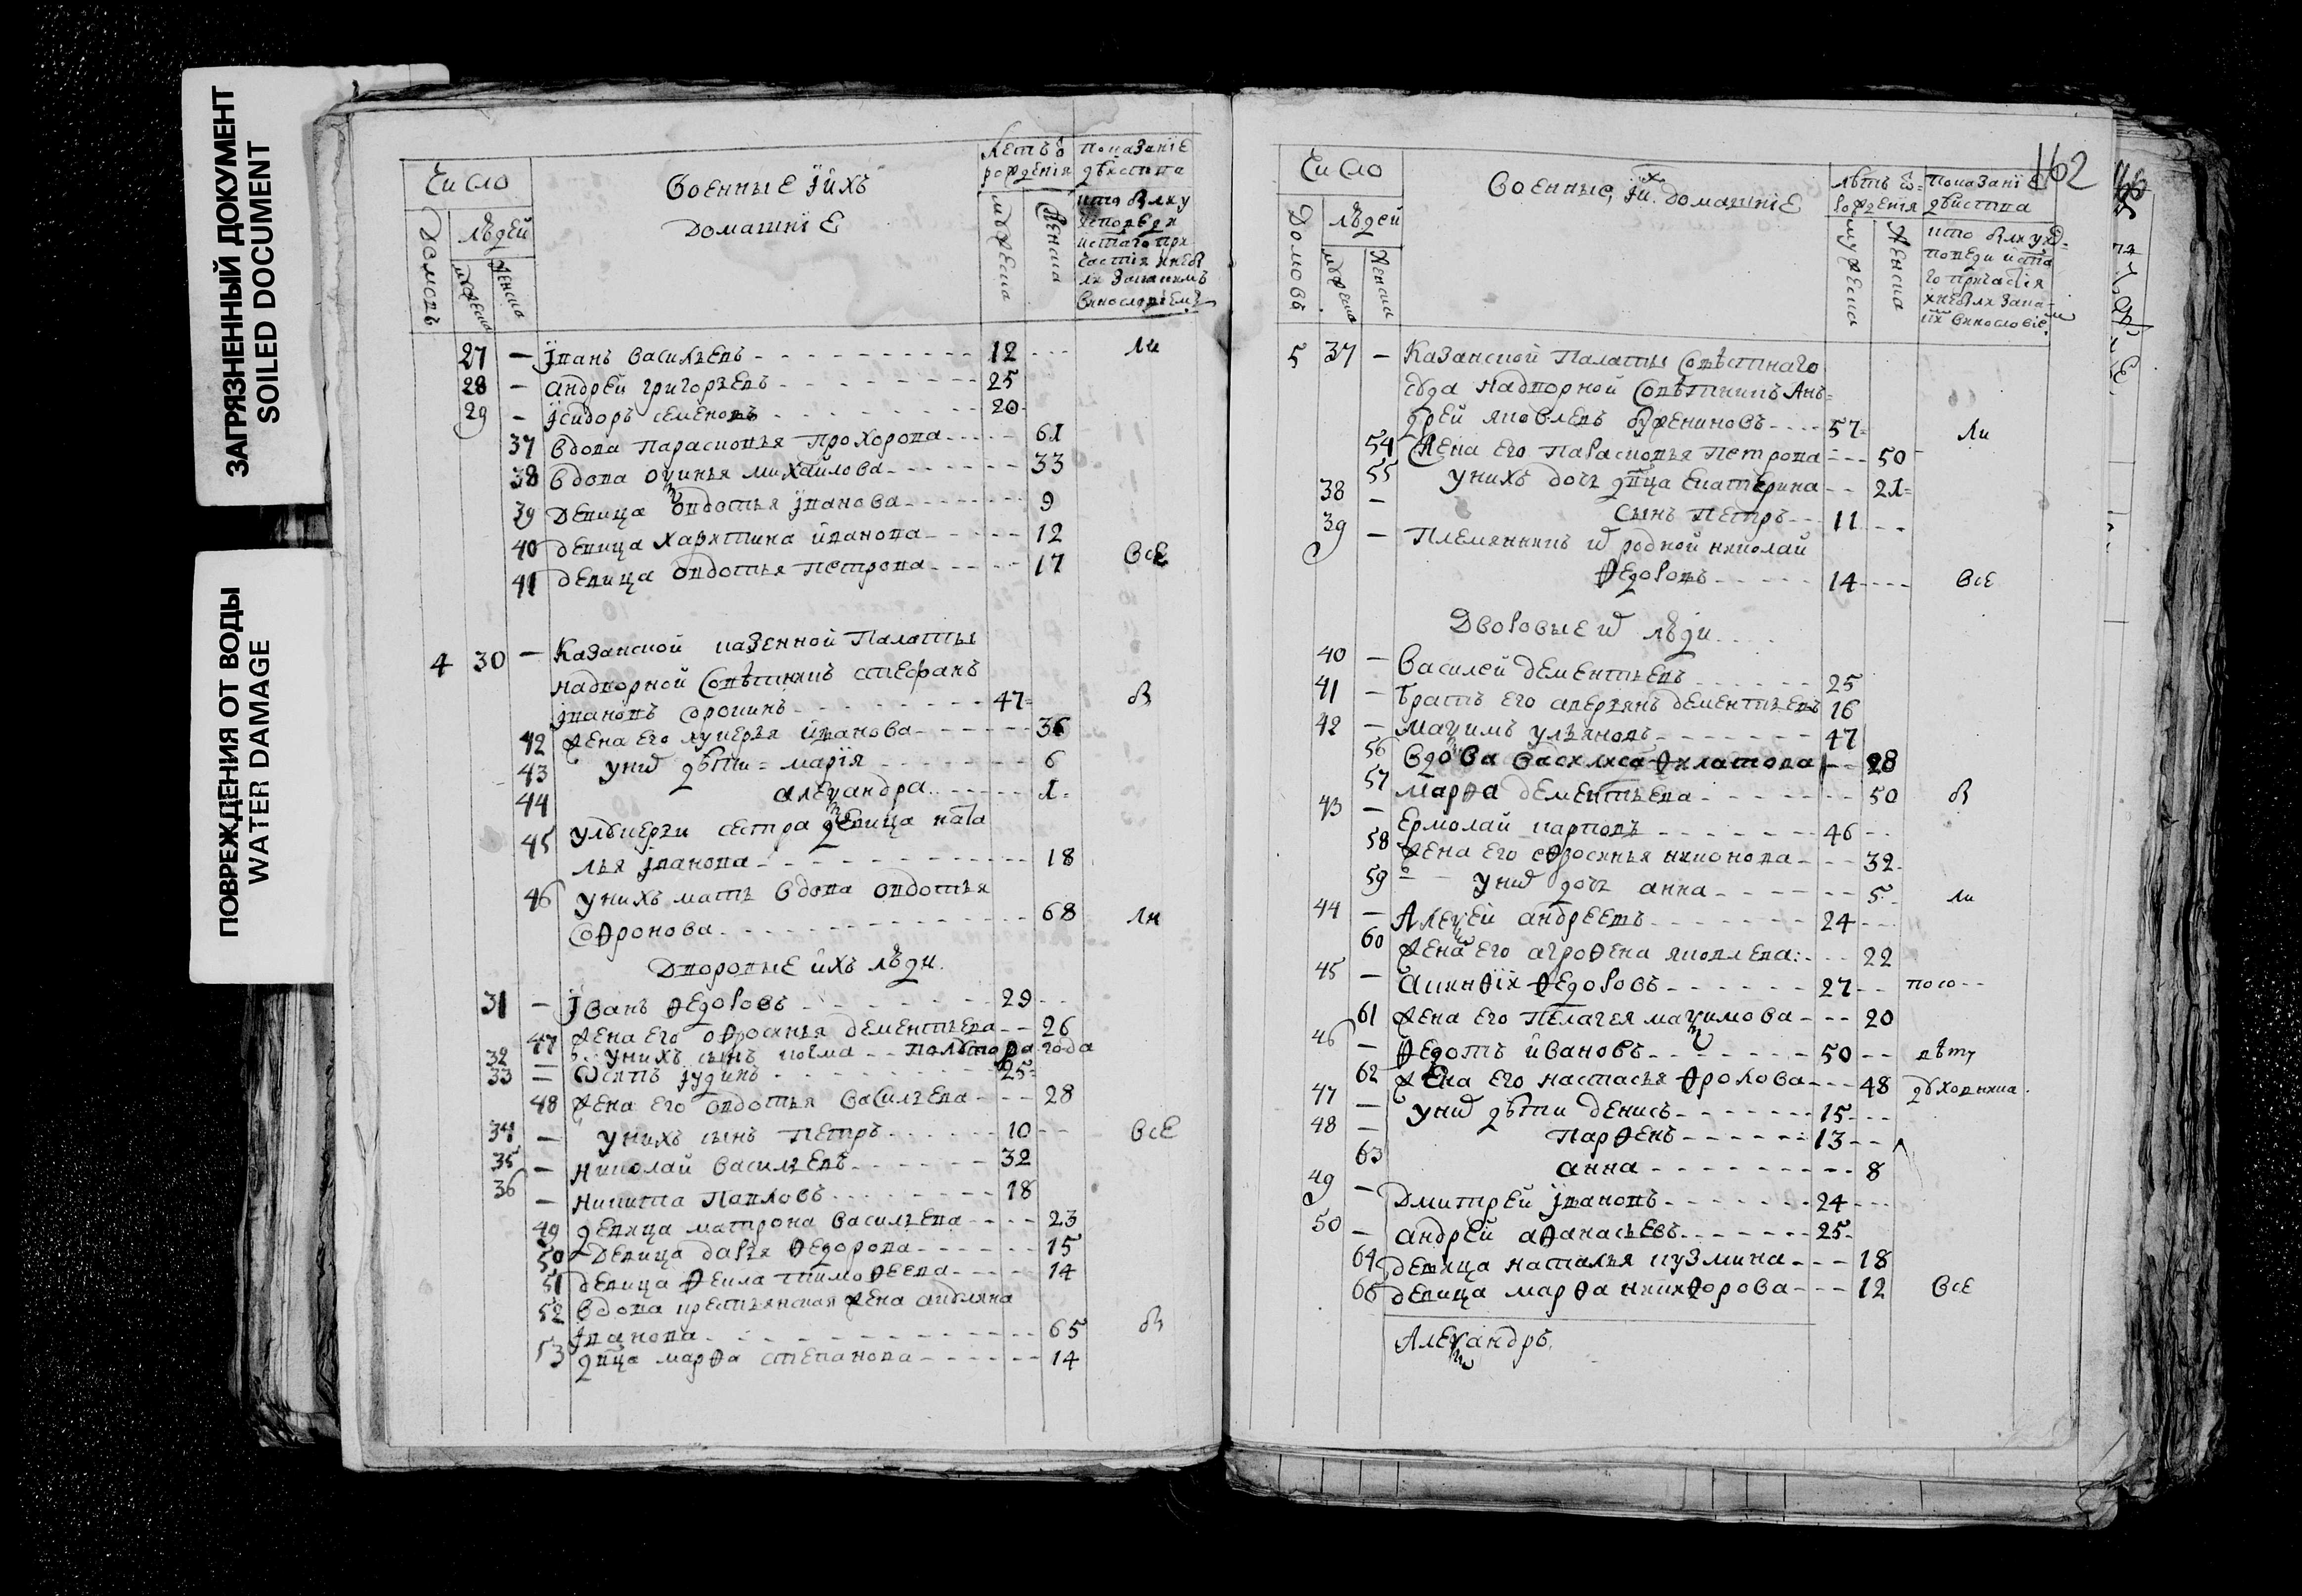 ЗАГРЯЗНЕННЫЙ ДОКУМЕНТ
SOILED DOCUMENT
ПОВРЕЖДЕНИЯ ОТ ВОДЫ
WATER DAMAGE
Число
Домовъ
людей
мужеска
женска
военные їихъ
домашнїе
летъ ѿ
рождения
мужеска
женска
показанїе
действа
кто былъ у
исповеди
27 — їванъ васильевъ 12 ли
28 — андрей григорьевъ 25
29 — їсидоръ семеновъ 20
37 вдова парасковья прохорова 61
38 вдова ѯинья михайлова 33
39 девица овдотья їванова 9
40 девица харитина иванова 12
41 девица овдотья петрова 17 все
4 30 — Казанской казенной палаты
надворной советникъ стефанъ
ївановъ сорокинъ 47 бы
42 жена его лукерья иванова 36
43 у нихъ дѣти марїя 6
44 алеѯандра 1
45 у лукерьи сестра девица ната
лья їванова 18
46 у нихъ мать вдова овдотья
соѳронова 68 ли
Дворовые ихъ люди
31 — їванъ ѳедоровъ 29
47 жена его оѳросинья дементьева 26
32 — у нихъ сынъ козма полтора года
33 — юдинъ 25
48 жена его овдотья васильева 28
34 — у нихъ сынъ петръ 10 все
35 — николай васильевъ 32
36 — никита павловъ 18
49 девица матрона васильева 23
50 девица дарья ѳедорова 15
51 девица ѳекла тимоѳеева 14
52 вдова крестьянская жена
їванова 65 бы
53 двца марѳа степанова 14
162
Число
Домовъ
людей
мужеска
женска
военные, їихъ домашнїе
лѣтъ ѿ
рожденїя
мужеска
женска
показанїе
действа
5 37 — Казанской палаты совѣстнаго
суда надворной совѣтникъ Ан=
дрей яковлевъ бжениновъ 57 ли
54 жена его парасковья петрова 50
55 у нихъ дочь двца екатерина 21
38 — сынъ петръ 11
39 — племянникъ родной николай
ѳедоровъ 14 все
Дворовые люди
40 — василей дементьевъ 25
41 — братъ его аверьянъ дементьевъ 16
42 — маѯимъ ульяновъ 47
56 вдова василиса ѳилатова 28
57 марѳа дементьева 50 бы
43 — ермолай карповъ 46
58 жена его еѳросинья никонова 32
59 у нихъ дочь анна 5 ли
44 — алеѯей андреевъ 24
60 жена его агроѳена яковлева 22
45 — ѳедоровъ 27
61 жена его пелагея маѯимова 20
46 — ѳедотъ ивановъ 50
62 жена его настасья ѳролова 48
47 — у нихъ дѣти денисъ 15
48 — парѳенъ 13
63 анна 8
49 — дмитрей ївановъ 24
50 — андрей аѳанасьевъ 25
64 девица наталья кузмина 18
65 девица марѳа никиѳорова 12 все
Алеѯандръ